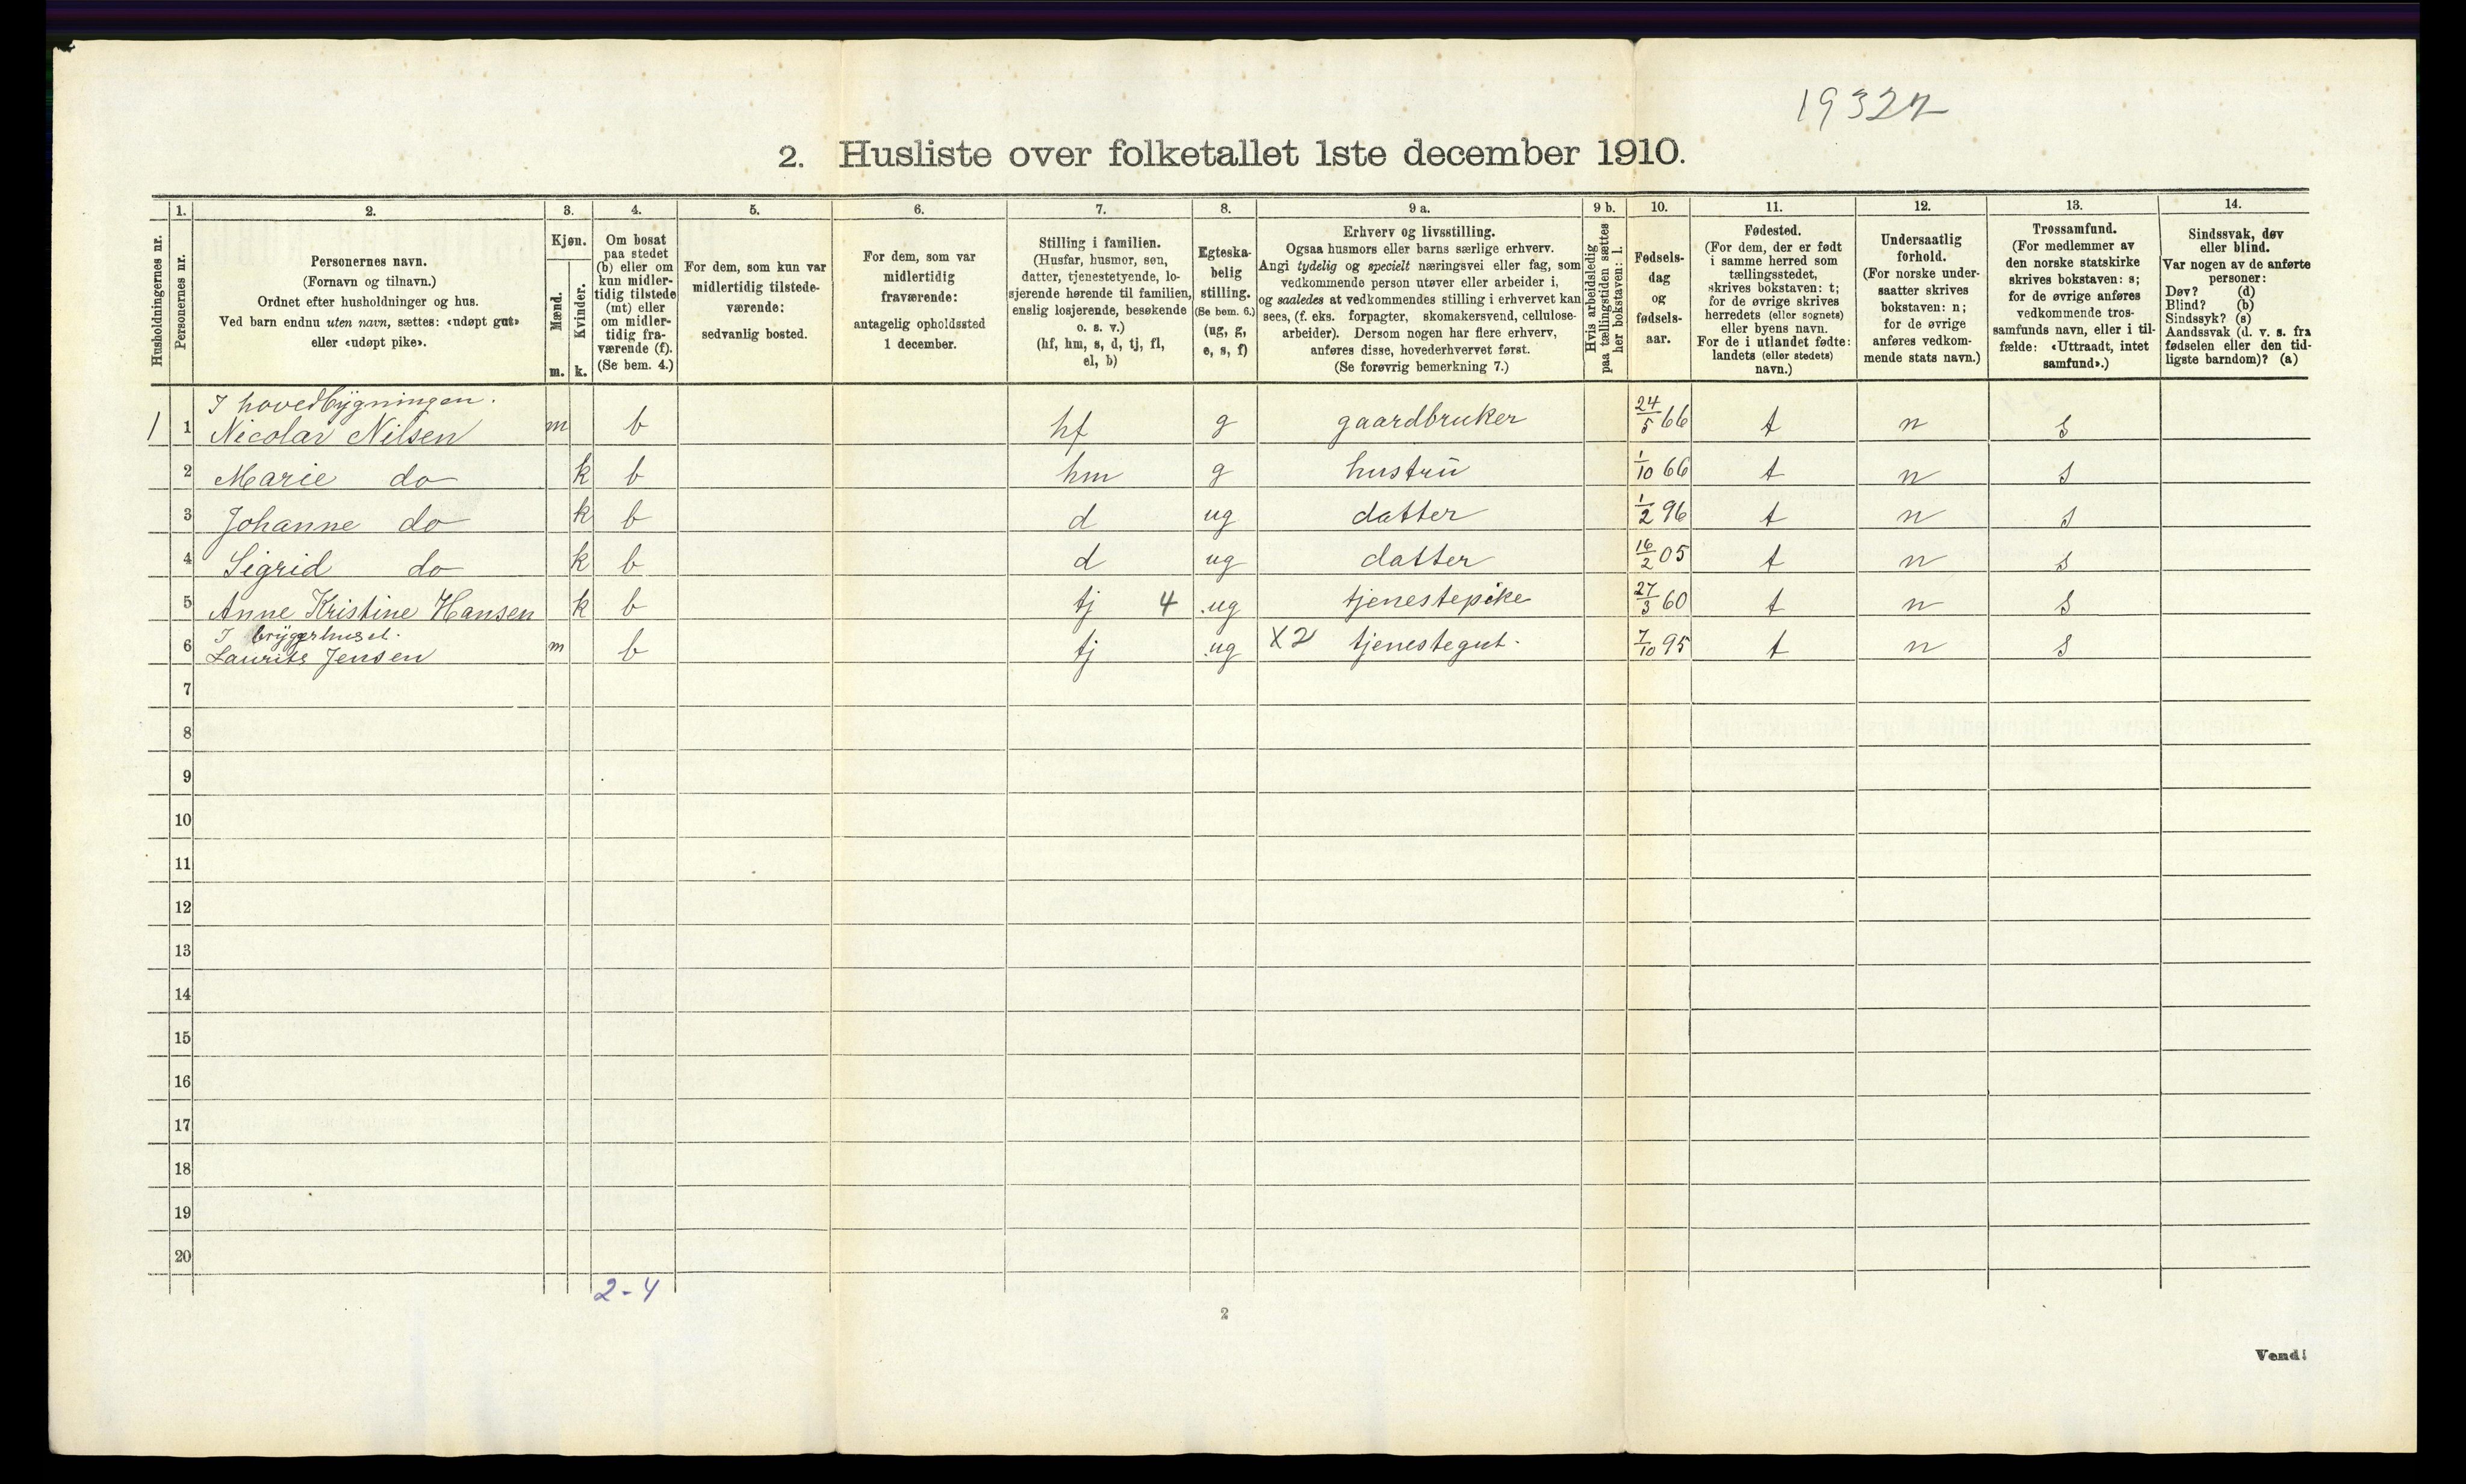 19322
2. Husliste over folketallet 1ste december 1910.
Husholdningernes nr.
1.
Personernes nr.
2.
Personernes navn.
(Fornavn og tilnavn.)
Ordnet efter husholdninger og hus.
Ved barn endnu uten navn, sættes: «udøpt gut»
eller «udøpt pike».
3.
Kjøn.
Mænd.
m.
Kvinder.
k.
4.
Om bosat
paa stedet
(b) eller om
kun midler-
tidig tilstede
(mt) eller
om midler-
tidig fra-
værende (f).
(Se bem. 4.)
5.
For dem, som kun var
midlertidig tilstede-
værende:
sedvanlig bosted.
6.
For dem, som var
midlertidig
fraværende:
antagelig opholdssted
1 december.
7.
Stilling i familien.
(Husfar, husmor, søn,
datter, tjenestetyende, lo-
sjerende hørende til familien,
enslig losjerende, besøkende
o. s. v.)
(hf, hm, s, d, tj, fl,
el, b)
8.
Egteska-
belig
stilling.
(Se bem. 6.)
(ug, g,
e, s, f)
9 a.
Erhverv og livsstilling.
Ogsaa husmors eller barns særlige erhverv.
Angi tydelig og specielt næringsvei eller fag, som
vedkommende person utøver eller arbeider i,
og saaledes at vedkommendes stilling i erhvervet kan
sees, (f. eks. forpagter, skomakersvend, cellulose-
arbeider). Dersom nogen har flere erhverv,
anføres disse, hovederhvervet først.
(Se forøvrig bemerkning 7.)
9 b.
Hvis arbeidsledig
paa tællingstiden sættes
her bokstaven: l.
10.
Fødsels-
dag
og
fødsels-
aar.
11.
Fødested.
(For dem, der er født
i samme herred som
tællingsstedet,
skrives bokstaven: t;
for de øvrige skrives
herredets (eller sognets)
eller byens navn.
For de i utlandet fødte:
landets (eller stedets)
navn.)
12.
Undersaatlig
forhold.
(For norske under-
saatter skrives
bokstaven: n;
for de øvrige
anføres vedkom-
mende stats navn.)
13.
Trossamfund.
(For medlemmer av
den norske statskirke
skrives bokstaven: s;
for de øvrige anføres
vedkommende tros-
samfunds navn, eller i til-
fælde: «Uttraadt, intet
samfund».)
14.
Sindssvak, døv
eller blind.
Var nogen av de anførte
personer:
Døv? (d)
Blind? (b)
Sindssyk? (s)
Aandssvak (d. v. s. fra
fødselen eller den tid-
ligste barndom)? (a)
I hovedbygningen.
1 1 Nicolai Nilsen m b hf g gaardbruker 24/5 66 t n s
2 Marie do k b hm g hustru 1/10 66 t n s
3 Johanne do k b d ug datter 1/2 96 t n s
4 Sigrid do k b d ug datter 16/2 05 t n s
5 Anne Kristine Hansen k b tj 4 ug tjenestepike 27/3 60 t n s
I bryggerhuset.
6 Laurits Jensen m b tj ug X2 tjenestegut. 7/10 95 t n s
7
8
9
10
11
12
13
14
15
16
17
18
19
20
2-4
2
Vend!